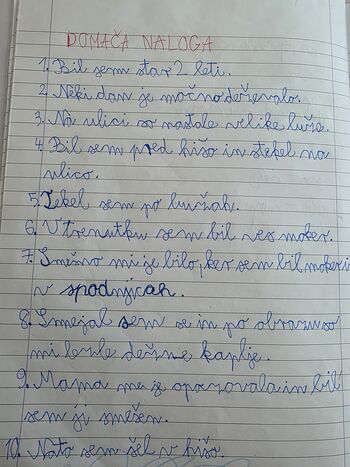 DOMAČA NALOGA
1. Bil sem star 2 leti.
2. Neki dan je močno deževalo.
3. Na ulici so nastale velike luže.
4. Bil sem pred hišo in stekel na
ulico.
5. Tekel sem po lužah.
6. V trenutku sem bil ves moker.
7. Smešno mi je bilo, ker sem bil moker i
v spodnjicah.
8. Smejal sem se in po obrazu so
mi lile dežne kaplje.
9. Mama me je opazovala in bil
sem ji smešen.
10. Nato sem šel v hišo.